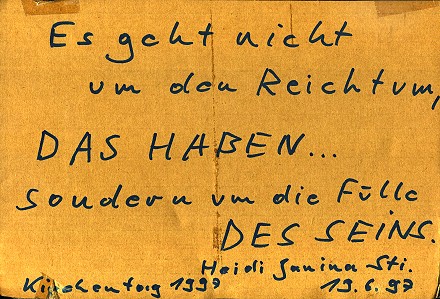 Es geht nicht
um den Reichtum,
DAS HABEN...
sondern um die Fülle
DES SEINS.
Heidi Janina Sti.
Kirchentag 1997 19.6.97